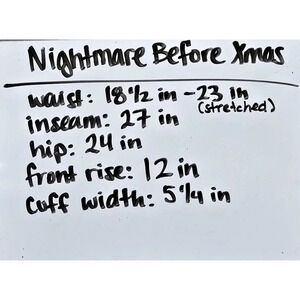 Nightmare Before Xmas
waist: 18 1/2 in - 23 in
(stretched)
inseam: 27 in
hip: 24 in
front rise: 12 in
cuff width: 5 1/4 in